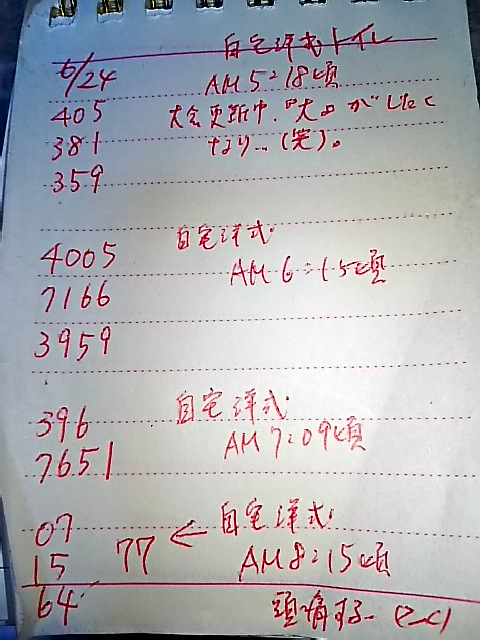 自宅洋式トイレ
6/24 AM5:18頃
405 大会更新中、『大』がしたく
381 なり…(笑)。
359
4005 自宅洋式.
7166 AM6:15頃
3959
396 自宅洋式.
7651 AM7:09頃
07 77 ← 自宅洋式.
15 AM8:15頃
64 頭痛する